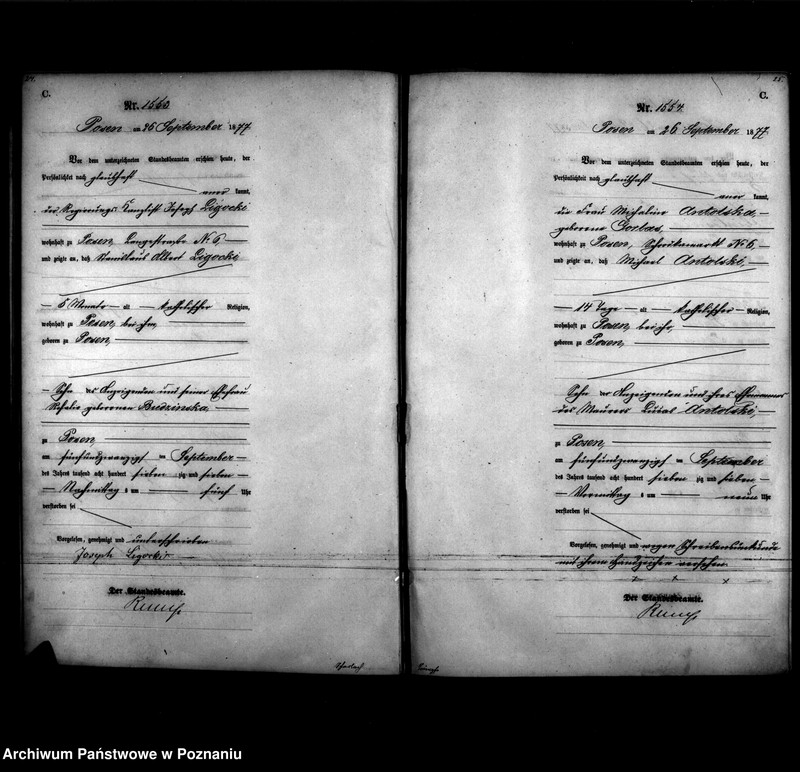 C.
Nr. 1553
Posen am 26 September 1877
Vor dem unterzeichneten Standesbeamten erschien heute, der
Persönlichkeit nach glaubhaft
aner kannt,
der Regierungs Kanzlist Joseph Ligocki
wohnhaft zu Posen, Langestraße No 6
und zeigte an, daß Stanislaus Albert Ligocki
8 Monate alt katholischer Religion,
wohnhaft zu Posen, bei ihm,
geboren zu Posen,
Sohn des Anzeigenden und seiner Ehefrau
geborenen Budzinska
zu Posen,
am fünfundzwanzigsten September
des Jahres tausend acht hundert siebenzig und sieben
Nachmittag s um fünf Uhr
verstorben sei
Vorgelesen, genehmigt und unterschrieben
Joseph Ligocki
Der Standesbeamte.
25.
C.
Nr. 1554
Posen am 26. September 1877
Vor dem unterzeichneten Standesbeamten erschien heute, der
Persönlichkeit nach glaubhaft
aner kannt,
die Frau Michalina Antolska
geborene Gorlas,
wohnhaft zu Posen, No 6,
und zeigte an, daß Michael Antolski,
14 Tage alt katholischer Religion,
wohnhaft zu Posen, bei ihr,
geboren zu Posen,
Sohn der Anzeigenden und ihres Ehemannes
des Maurers Lucas Antolski,
zu Posen,
am fünfundzwanzigsten September
des Jahres tausend acht hundert siebenzig und sieben
Vormittag s um neun Uhr
verstorben sei
Vorgelesen, genehmigt und wegen Schreibensunkunde
mit ihrem Handzeichen versehen
x x x
Der Standesbeamte.
Archiwum Państwowe w Poznaniu